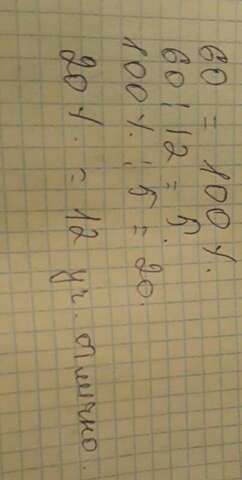 60 = 100 %.
60 : 12 = 5.
100 %. : 5 = 20.
20 %. = 12 уч. отлично.